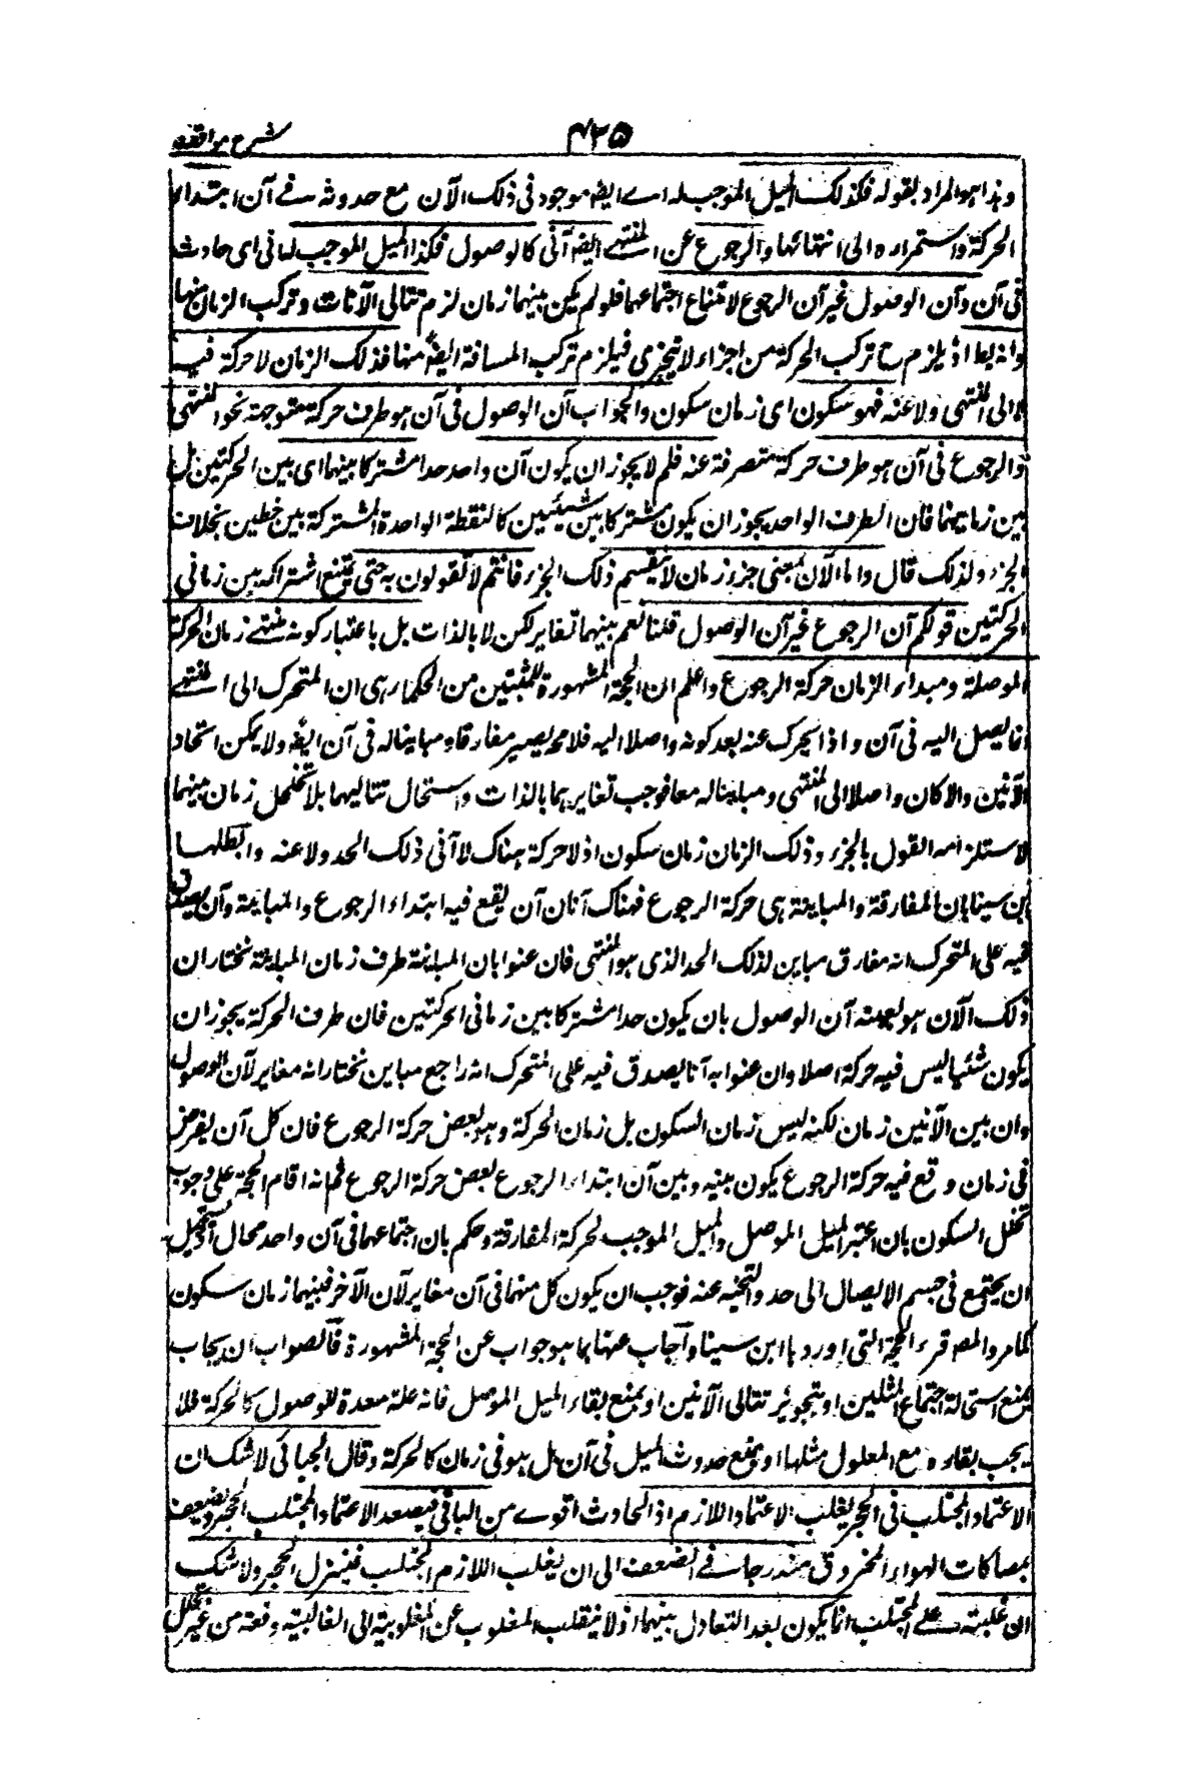 شرح مواقف ٤٣٥
وهذا هو المراد بقوله فكذلك الميل الموجب له اے ايضا موجود فى ذلك الآن مع حدوثه فے آن ابتداء
الحركة واستمراره الى انتهائها والرجوع عن المنتهے ايضا آنى كالوصول فكذا الميل الموجب له آنى اى حادث
فى آن وآن الوصول غير آن الرجوع لامتناع اجتماعهما فلو لم يكن بينهما زمان لزم تتالى الآنات وتركب الزمان منها
وانه بط اذ يلزم ح تركب الحركة من اجزاء لا تتجزى فيلزم تركب المسافة ايضا منها فذلك الزمان لا حركة فيه
لا الى المنتهى ولا عنه فهو سكون اى زمان سكون والجواب آن الوصول فى آن هو طرف حركة متوجهة نحو المنتهى
والرجوع فى آن هو طرف حركة منصرفة عنه فلم لا يجوز ان يكون آن واحد حدا مشتركا بينهما اى بين الحركتين بل
بين زمانيهما فان الطرف الواحد يجوز ان يكون مشتركا بين شيئين كالنقطة الواحدة المشتركة بين خطين بخلاف
الجزء ولذلك قال واما الآن بمعنى جزء زمان لا ينقسم ذلك الجزء فانتم لا تقولون به حتى يمتنع اشتراكه بين زمانى
الحركتين قولكم آن الرجوع غير آن الوصول قلنا نعم بينهما تغاير لكن لا بالذات بل باعتبار كونه منتهے زمان الحركة
الموصلة ومبداء الزمان حركة الرجوع واعلم ان الحجة المشهورة للمثبتين من الحكماء هى ان المتحرك الى المنتهے
انما يصل اليه فى آن واذا تحرك عنه بعد كونه واصلا اليه فلا محه يصير مفارقا ومباينا له فى آن ايضا ولا يمكن اتحاد
الآنين والا كان واصلا الى المنتهى ومباينا له معا فوجب تغايرهما بالذات واستحال تتاليهما بلا تخلل زمان بينهما
لاستلزامه القول بالجزء وذلك الزمان زمان سكون اذ لا حركة هناك لا الى ذلك الحد ولا عنه وابطلها
ابن سينا بان المفارقة والمباينة هى حركة الرجوع فهناك آنان آن يقع فيه ابتداء الرجوع والمباينة وآن يصدق
فيه على المتحرك انه مفارق مباين لذلك الحد الذى هو المنتهى فان عنوا بان المباينة طرف زمان المباينة نختار ان
ذلك الآن هو بعينه آن الوصول بان يكون حدا مشتركا بين زمانى الحركتين فان طرف الحركة يجوز ان
يكون شيئا ليس فيه حركة اصلا وان عنوا به آنا يصدق فيه على المتحرك انه راجع مباين نختار انه مغاير لآن الوصول
وان بين الآنين زمان لكنه ليس زمان السكون بل زمان الحركة وهو بعض حركة الرجوع فان كل آن يفرض
فى زمان وقع فيه حركة الرجوع يكون بينه وبين آن ابتداء الرجوع بعض حركة الرجوع ثم انه اقام الحجة على وجوب
تخلل السكون بان اعتبر الميل الموصل والميل الموجب لحركة المفارقة وحكم بان اجتماعهما فى آن واحد محال اذ يستحيل
ان يجتمع فى جسم الايصال الى حد والتنحية عنه فوجب ان يكون كل منهما فى آن مغاير لآن الآخر فبينهما زمان سكون
كما مر والمصه قرر الحجة التى اوردها ابن سينا واجاب عنها بما هو جواب عن الحجة المشهورة فالصواب ان يجاب
بمنع استحالة اجتماع المثلين او بتجويز تتالى الآنين او بمنع بقاء الميل الموصل فانه علة معدة للوصول كالحركة فلا
يجب بقاره مع المعلول مثلها او بمنع حدوث الميل فى آن بل هو فى زمان كالحركة وقال الجبائى لا شك ان
الاعتماد المجتلب فى الحجر يغلب الاعتماد اللازم اذ الحادث اقوے من الباقى فيصعد الاعتماد المجتلب الحجر ويضعف
بمصاكات الهواء المخروق متدرجا فے الضعف الى ان يغلب اللازم المجتلب فينزل الحجر ولا شك
ان غلبته علے المجتلب انما يكون بعد التعادل بينهما اذ لا ينقلب المغلوب عن المغلوبية الى الغالبية دفعة من غير تخلل